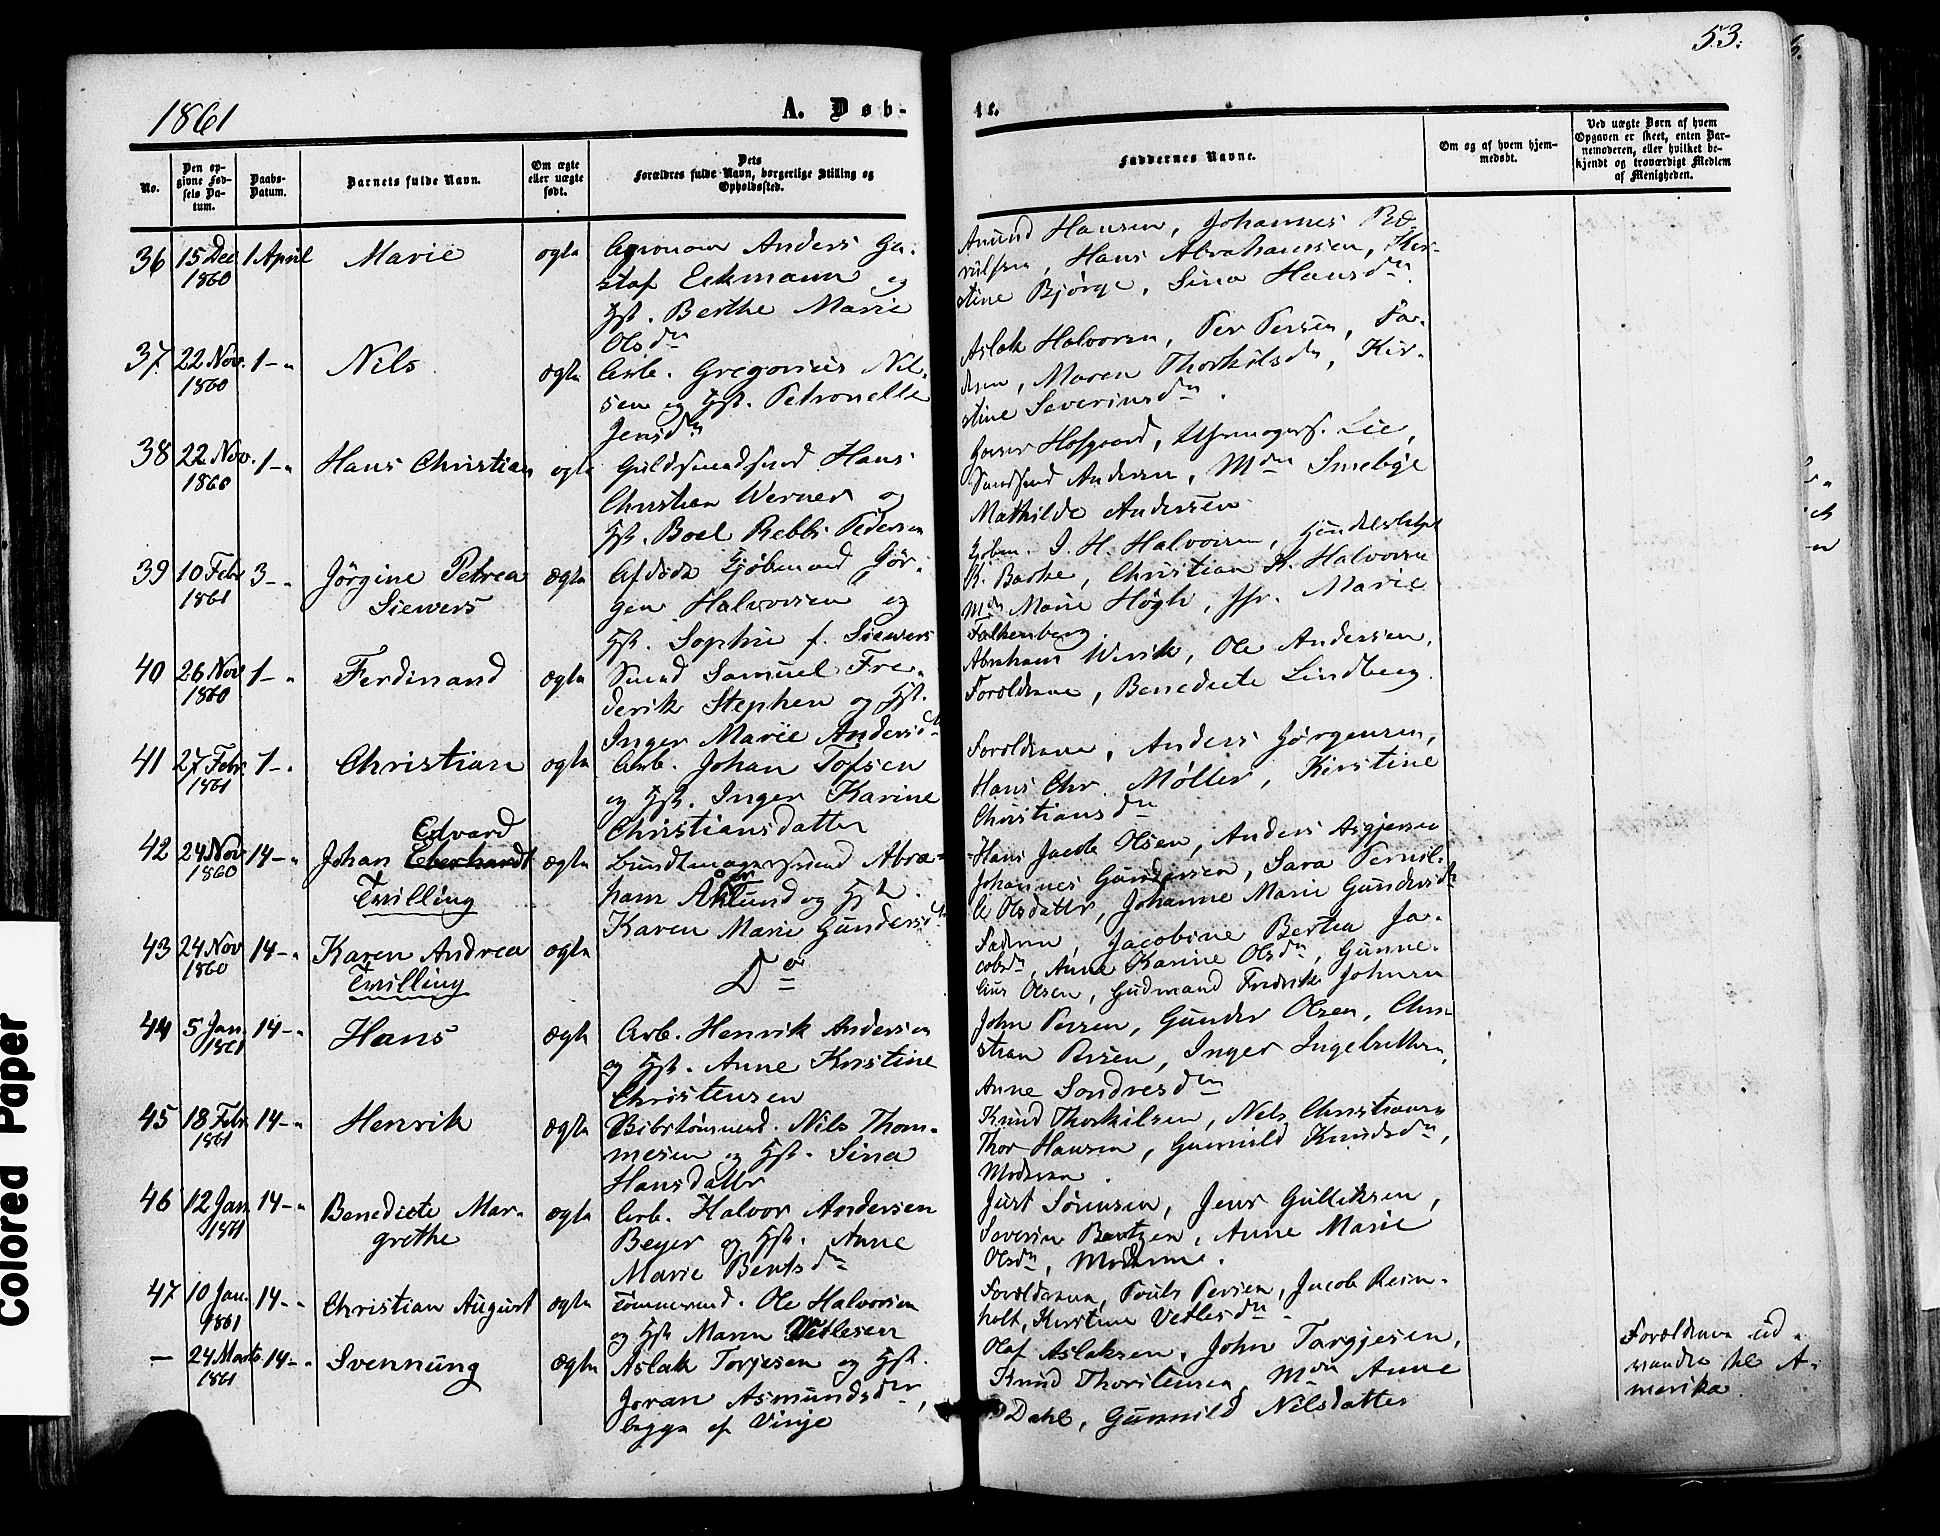 53.
1861
A. Døb-
te.
No.
Den opgivne Fødsels Datum.
Daabs-Datum.
Barnets fulde Navn.
Om ægte eller uægte født.
Dets Forældres fulde Navn, borgerlige Stilling og Opholdssted.
Faddernes Navne.
Om og af hvem hjemmedøbt.
Ved uægte Børn af hvem Opgaven er skeet, enten Barnemoderen, eller hvilket bekjendt og troværdigt Medlem af Menigheden.
36 15 Dec 1860 1 April Marie ægte
Agronom Anders Gu-
staf Eckmann og
Hst. Berthe Marie
Olsdr
Amund Hansen, Johannes
Hans Abrahamsen, Kir-
stine Bjørge, Sina Hansdr
37 22 Nov. 1860 1-" Nils ægte
Arb. Gregorius Nil-
sen og Hst. Petronelle
Jensdr
Aslak Halvorsen, Per Persen, Fa-
deren, Maren Thorkilsdr, Kir-
stine Severinsdr.
38 22 Nov. 1860 1-" Hans Christian ægte
Guldsmedsvend Hans
Christian Werner og
Hst. Boel Rebbi Pedersen
Hofgaard, Lie,
Andersen, Mdm Smebye
Mathilde Andersen
39 10 Febr 1861 3-" Jörgine Petrea Siewers ægte
Afdøde Kjøbmand Jör-
gen Halvorsen og
Hst. Sophie f. Siewers
Kjøbm. J. H. Halvorsen,
K. Barke, Christian H. Halvorsen
Mdm Marie Høgh, Jfr. Marie
Falkenberg
40 26 Nov 1860 1-" Ferdinand ægte
Smed Samuel Fre-
derik Stephen og Hst.
Inger Marie Andersdr
Abraham Werik, Ole Andersen,
Forældrene, Benedicte Lindberg.
41 27 Febr. 1861 1-" Christian ægte
Arb. Johan Tofsen
og Hst. Inger Karine
Christiansdatter
Forældrene, Anders Jørgensen,
Hans Chr. Møller, Kirstine
Christiansdr
42 24 Nov 1860 14-" Johan Eberhardt Edvard Tvilling ægte
Bundtmagersvend Abra-
ham Åkerlund og Hst.
Karen Marie Gundersdr
Hans Jacob Olsen, Anders Asgjersen
Johannes Gundersen, Sara Pernil-
le Olsdatter, Johanne Marie Gundersdr
43 24 Nov 1860 14-" Karen Andrea Tvilling ægte
Do
Faderen, Jacobine Bertea Ja-
cobsdr, Anne Karine Olsdr, Gunne-
lius Olsen, Gudmand Fredrik Johnsen
44 5 Jan. 1861 14-" Hans ægte
Arb. Henrik Andersen
og Hst. Anne Kristine
Christensen
John Persen, Gunder Olsen, Chri-
stian Persen, Inger Ingebretsen,
Anne Sondresdr
45 18 Febr 1861 14-" Henrik ægte
Nils Thom-
mesen og Hst. Sina
Hansdatter
Knud Thorkilsen, Nels Christiansen
Thor Hansen, Gunnild Knudsdr,
Moderen.
46 12 Jan. 1861 14-" Benedicte Mar-
grethe ægte
Arb. Halvor Andersen
Beyer og Hst. Anne
Marie Bentsdr
Just Sørensen, Jens Gulliksen,
Severin Bentzen, Anne Marie
Olsdr, Moderen.
47 10 Jan. 1861 14-" Christian August ægte
Tømmermd. Ole Halvorsen
og Hst Maren Vetlesen
Forældrene, Pouls Persen, Jacob Rein-
holt, Kirstine Vetlesdr.
— 24 Marts 1861 14-" Svennung ægte
Aslak Torjesen og Hst.
Joran Asmundsdr,
begge af Vinje
Olaf Aslaksen, John Targjesen,
Knud Thorstensen, Mdm Anne
Dahl, Gunnild Nilsdatter
Forældrene ud-
vandre til A-
merika.
Colored Paper